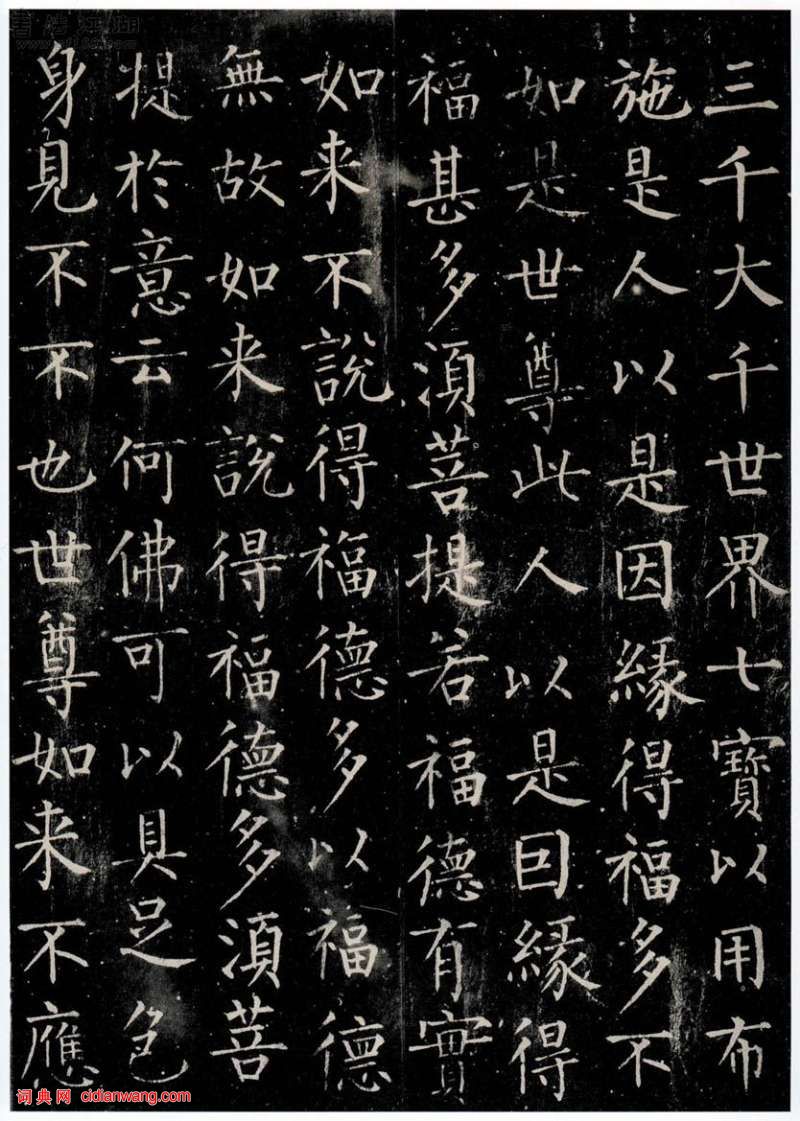 三千大千世界七寶以用布
施是人以是因緣得福多不
如是世尊此人以是囙緣得
福甚多須菩提若福德有實
如来不說得福德多以福德
無故如来說得福德多須菩
提於意云何佛可以具足色
身見不不也世尊如来不應
词典网 cidianwang.com